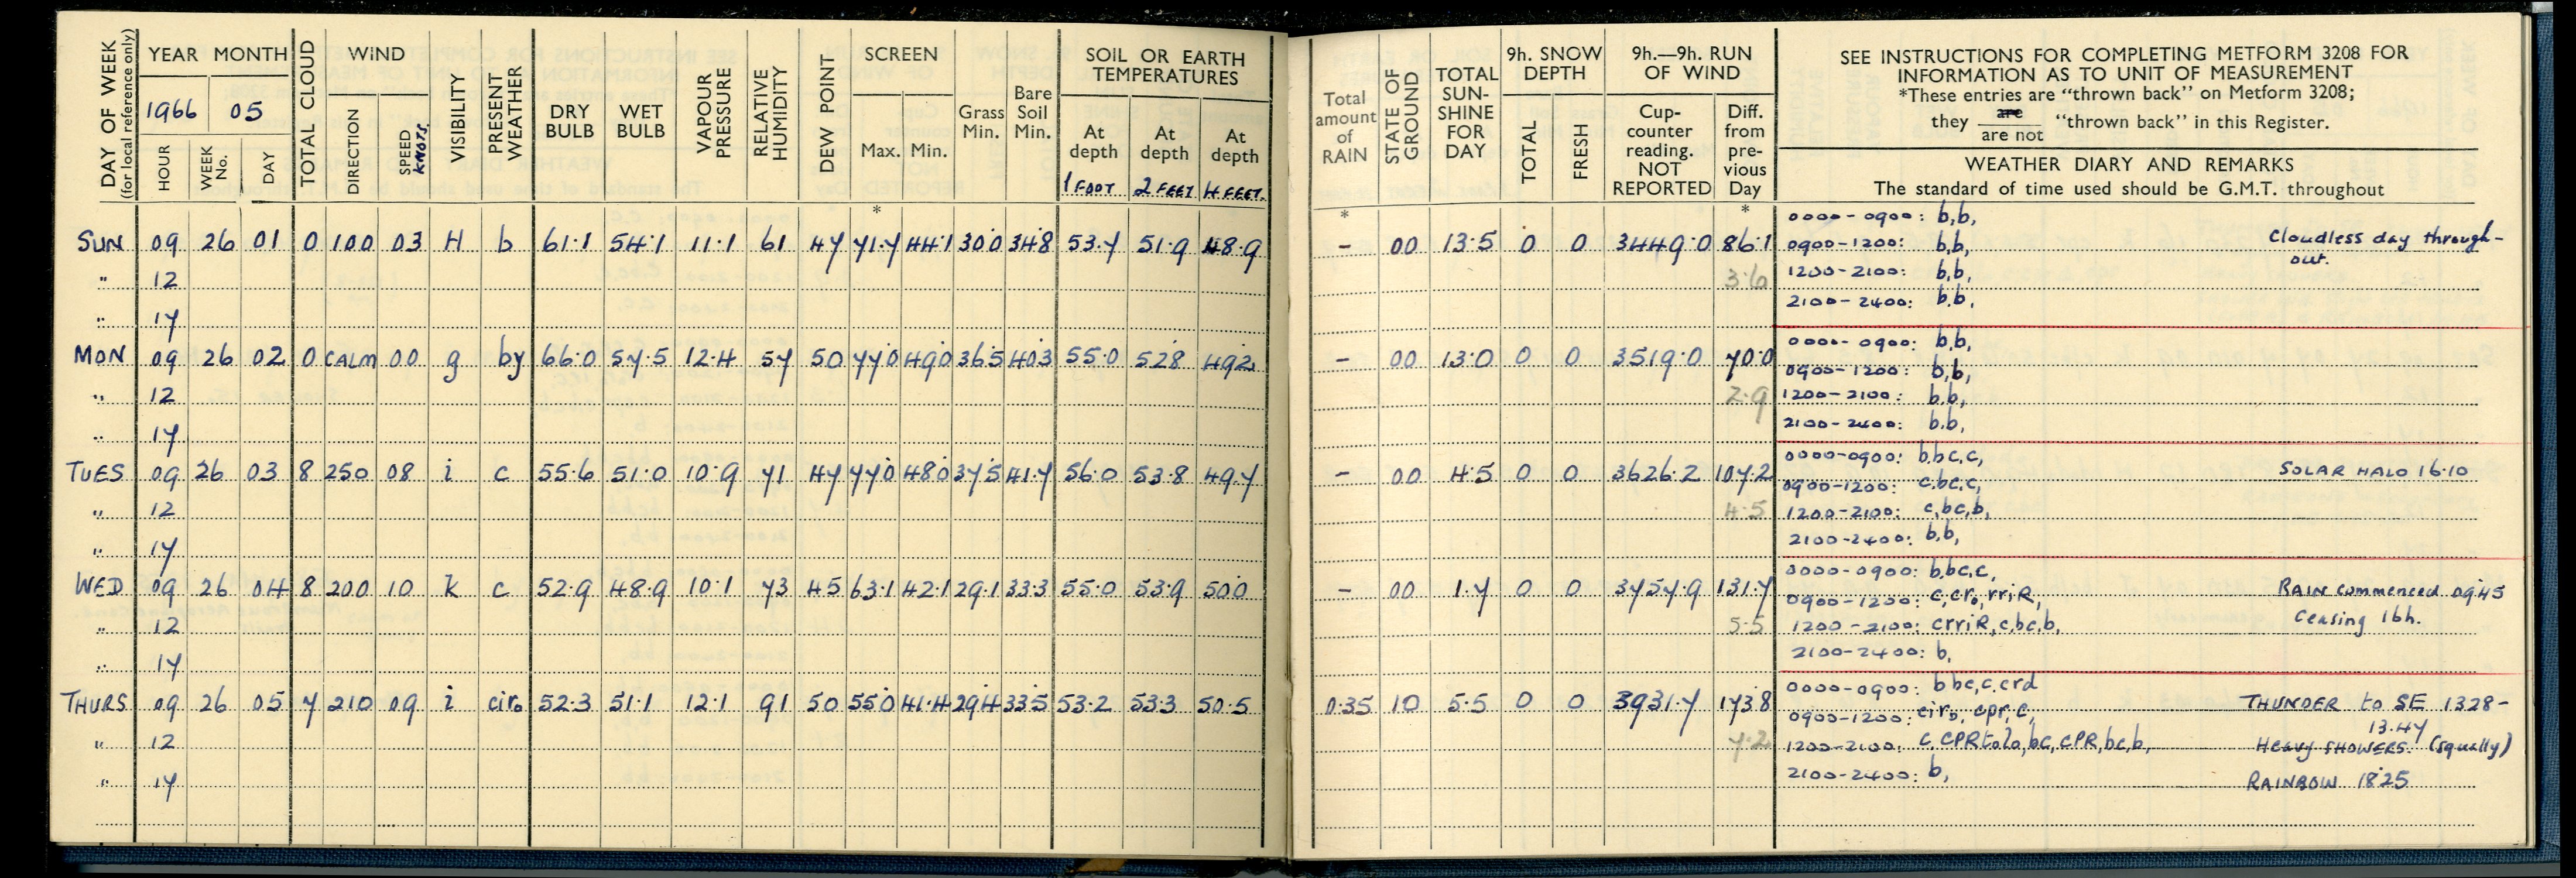 DAY OF WEEK
(for local reference only)
YEAR MONTH
1966 05
HOUR
WEEK No.
DAY
TOTAL CLOUD
WIND
DIRECTION
SPEED KNOTS.
VISIBILITY
PRESENT WEATHER
DRY BULB
WET BULB
VAPOUR PRESSURE
RELATIVE HUMIDITY
DEW POINT
SCREEN
Max. Min.
Grass Min.
Bare Soil Min.
SOIL OR EARTH TEMPERATURES
At depth At depth At depth
1 FOOT 2 FEET 4 FEET.
Total amount of RAIN
STATE OF GROUND
TOTAL SUN- SHINE FOR DAY
9h. SNOW DEPTH
TOTAL
FRESH
9h.—9h. RUN OF WIND
Cup- counter reading. NOT REPORTED
Diff. from pre- vious Day
SEE INSTRUCTIONS FOR COMPLETING METFORM 3208 FOR
INFORMATION AS TO UNIT OF MEASUREMENT
*These entries are "thrown back" on Metform 3208;
they are / are not "thrown back" in this Register.
WEATHER DIARY AND REMARKS
The standard of time used should be G.M.T. throughout
* * *
SUN 09 26 01 0 100 03 H b 61.1 54.1 11.1 61 47 71.7 44.1 30.0 34.8 53.7 51.9 48.9 – 00 13.5 0 0 3449.0 86.1
0000-0900: b,b,
0900-1200: b,b, Cloudless day through-
out.
" 12 3.6 1200-2100: b,b,
2100-2400: b.b,
" 17
MON 09 26 02 0 CALM 00 g by 66.0 57.5 12.4 57 50 77.0 49.0 36.5 40.3 55.0 52.8 49.2 – 00 13.0 0 0 3519.0 70.0
0000-0900: b,b,
0900-1200: b,b,
" 12 2.9 1200-2100: b.b,
2100-2400: b.b,
" 17
TUES 09 26 03 8 250 08 i c 55.6 51.0 10.9 71 47 77.0 48.0 37.5 41.7 56.0 53.8 49.7 – 00 4.5 0 0 3626.2 107.2
0000-0900: b,bc,c, SOLAR HALO 16.10
0900-1200: c,bc,c,
" 12 4.5 1200-2100: c,bc,b,
2100-2400: b,b,
" 17
WED 09 26 04 8 200 10 k c 52.9 48.9 10.1 73 45 63.1 42.1 29.1 33.3 55.0 53.9 50.0 – 00 1.7 0 0 3757.9 131.7
0000-0900: b,bc,c,
0900-1200: c,cro,rriR, RAIN commenced 0945
" 12 5.5 1200-2100: crriR,c,bc,b, Ceasing 16h.
2100-2400: b,
" 17
THURS 09 26 05 7 210 09 i ciro 52.3 51.1 12.1 91 50 55.0 41.4 29.4 33.5 53.2 53.3 50.5 0.35 10 5.5 0 0 3931.7 173.8
0000-0900: b bc,c,crd
0900-1200: ciro, cpr,c, THUNDER to SE 1328-
13.47
" 12 7.2 1200-2100: bc, CPR,bc,b, Heavy SHOWERS. (squally)
2100-2400: b, RAINBOW 18.25
" 17